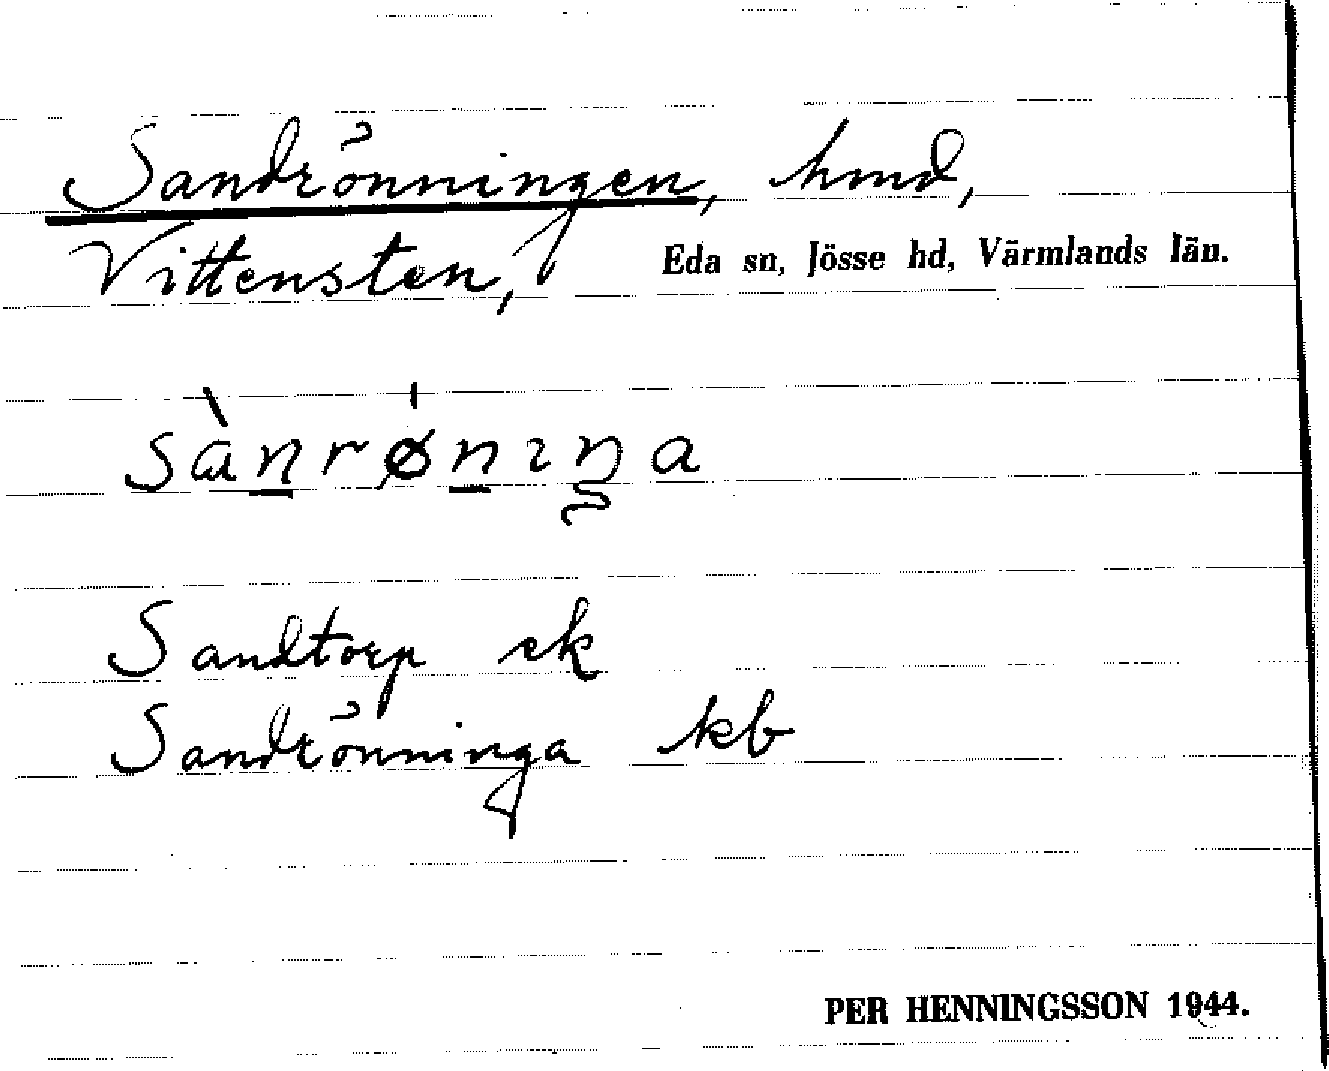 Sandrönningen, hmd,
Vittensten, Eda sn, Jösse hd, Värmlands län.
sànrønıŋa
Sandtorp ek
Sandrönninga kb
PER HENNINGSSON 1944.